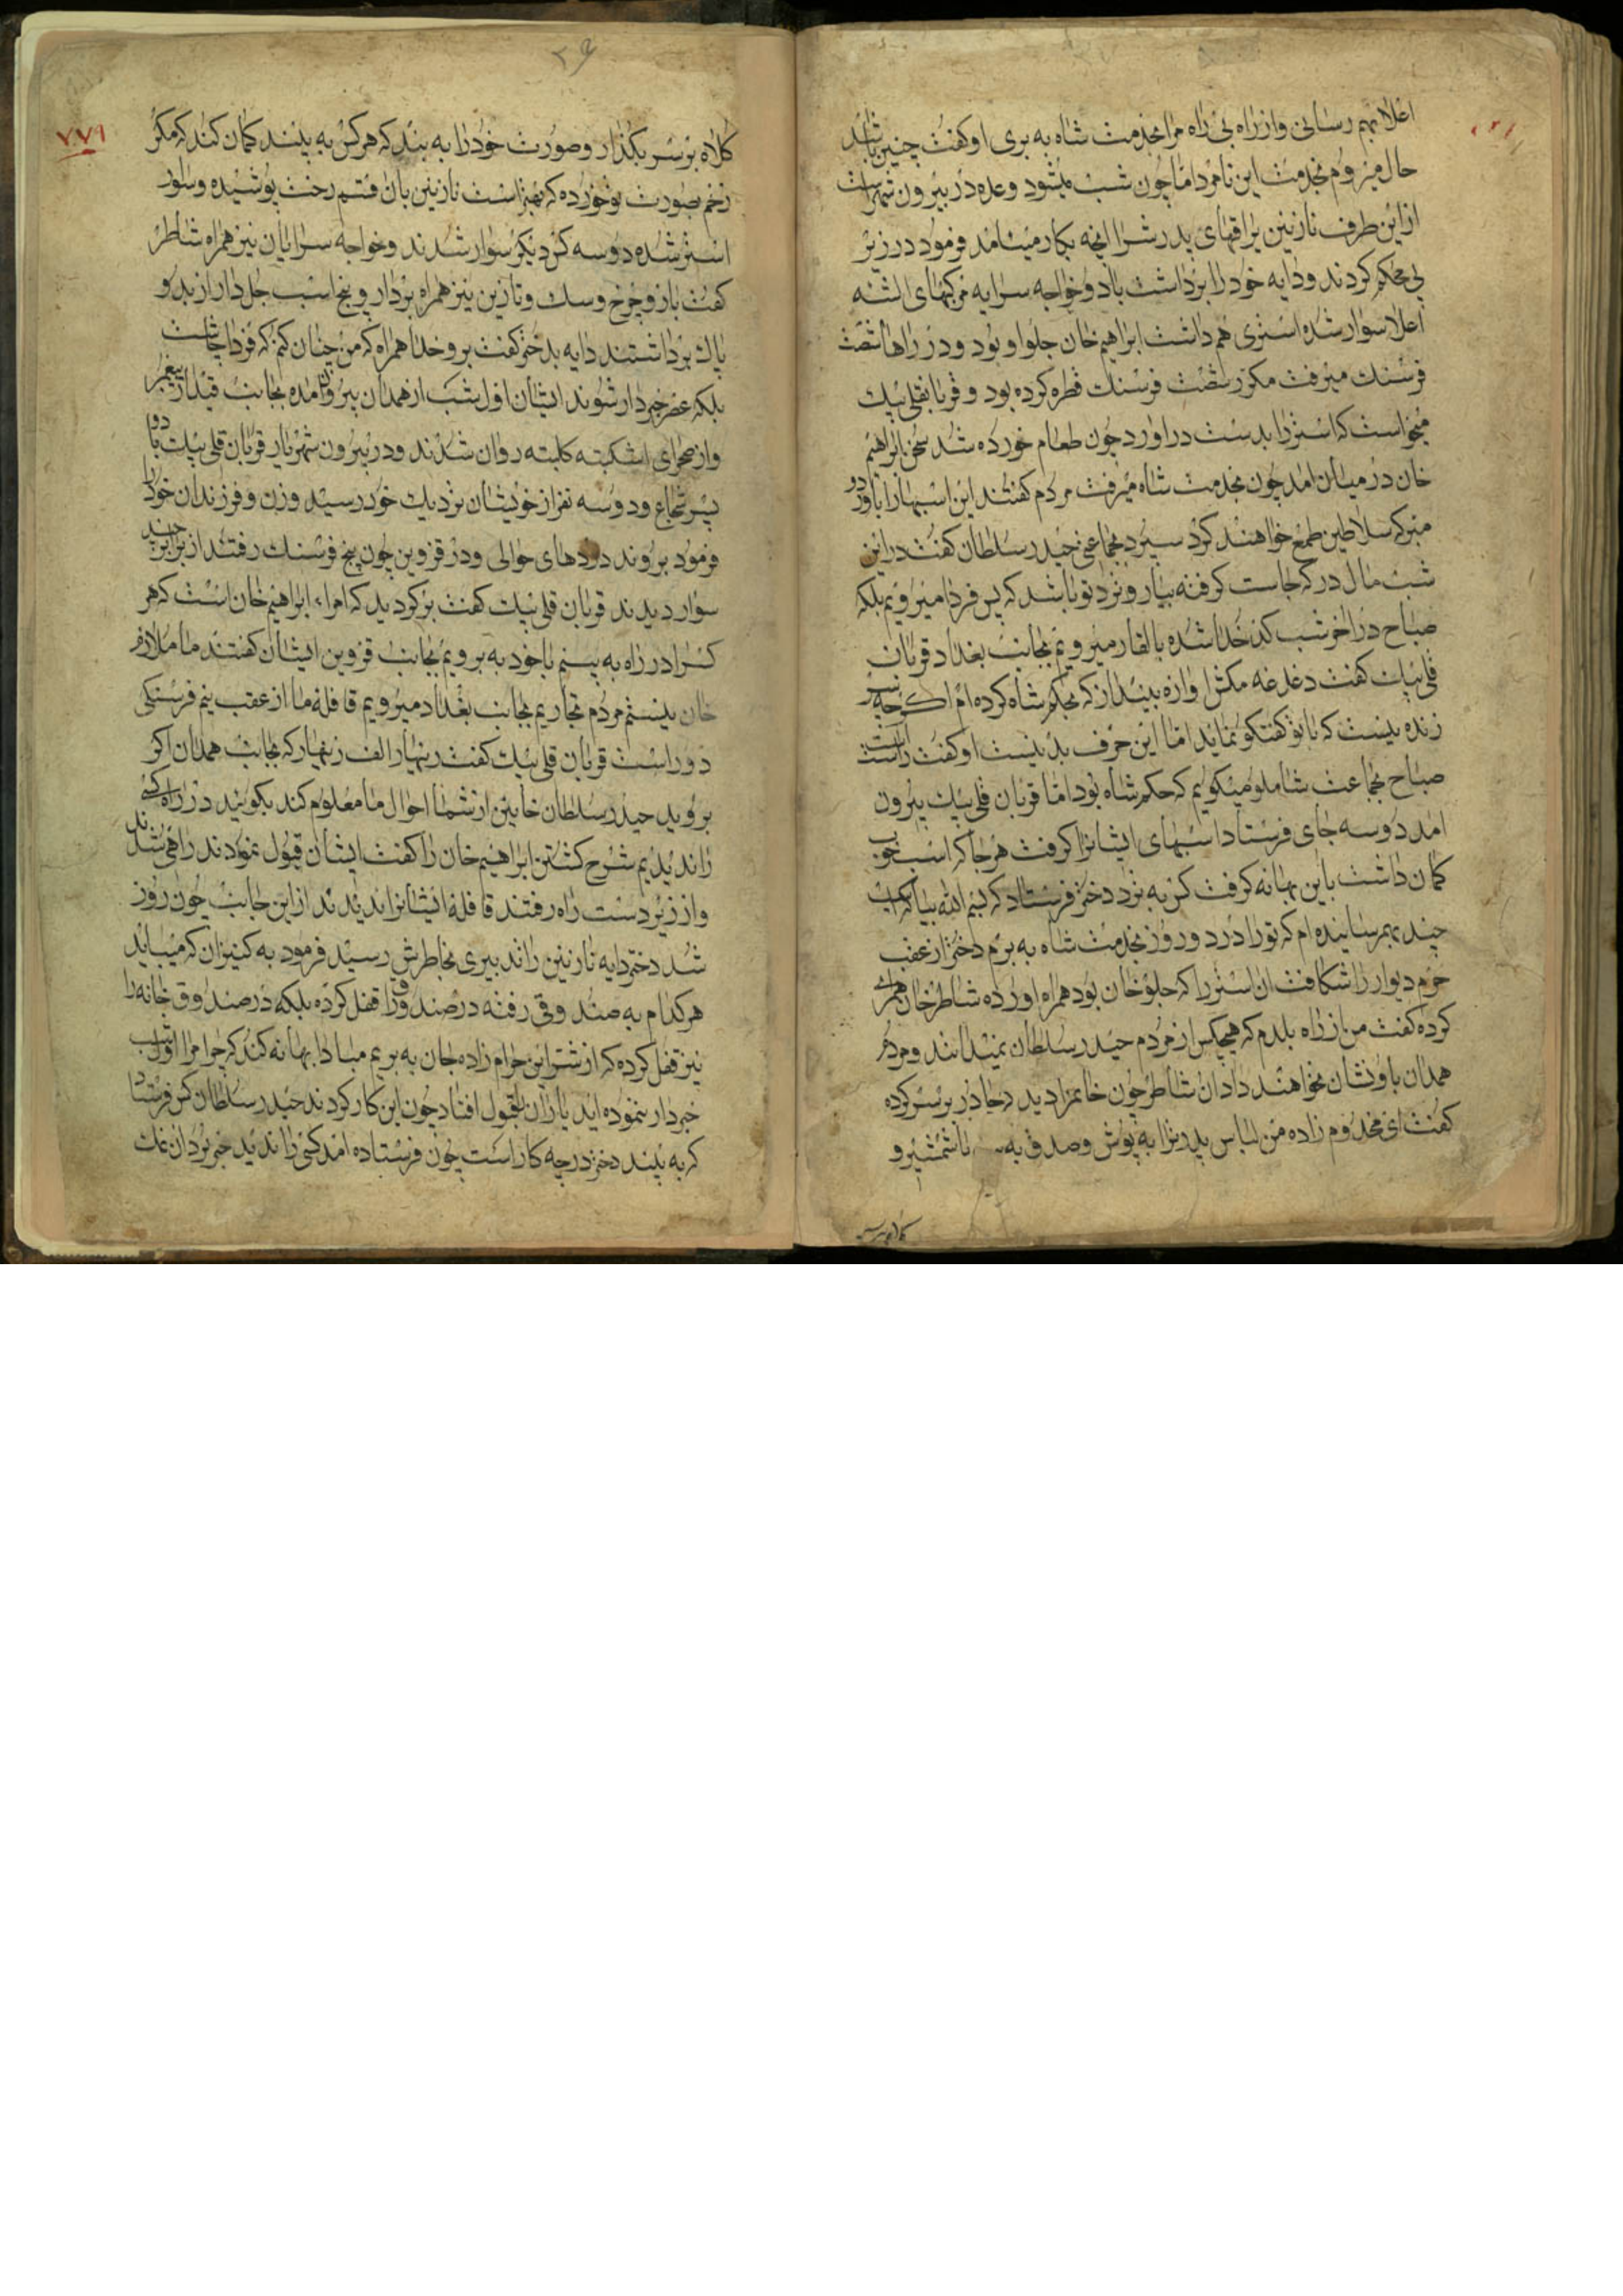 اعلا بهم رسانی و از راه بی راه مرا بخدمت شاه به بری او کفت چنین باشد
حال میروم بخدمت این نامرد اما چون شب میشود وعده در بیرون شهر است
از این طرف نازنین یراقهای پدرش را انچه بکار میامد فرمود در زیر
محکم کردند و دایه خود را برداشت با دو خواجه سرا به مرکبهای
اعلا سوار شده استری هم داشت ابراهیم خان جلو او بود و در راهها شصت
فرسنک میرفت مکرر شصت فرسنک قطره کرده بود و قربانقلی بیک
میخواست که استر را بدست در اورد چون طعام خورده شد سخن ابراهیم
خان در میان امد چون بخدمت شاه میرفت مردم کفتند این اسبها را باو
مبر که سلاطین طمع خواهند کرد سپرد بجماعی حیدر سلطان کفت در این
شب مال در کجاست کرفته بیار و نزد تو باشد که پس فردا میرویم بلکه
صباح در اخر شب کدخدا شده بالقار میرویم بجانب بغداد قربان
قلی بیک کفت دغدغه مکش اوازه بینداز که بحکم شاه کرده ام اکرچه
زنده نیست که با تو کفتکو نماید اما این حرف بد نیست او کفت راست است
صباح بجماعت شاملو میکویم که حکم شاه بود اما قربان قلی بیک بیرون
امد دو سه جای فرستاد اسبهای ایشانرا کرفت هرجا که اسب خوب
کمان داشت باین بهانه کرفت کس به نزد دختر فرستاد که بسم الله بیا که اسب
چند بهم رسانیده ام که تو را در دو روز بخدمت شاه به برم دختر از عقب
حرم دیوار را شکافت ان استر را که جلو خان بود همراه اورده شاطر خان همراه
کرده کفت من از راه بلدم که هیچکس از مردم حیدر سلطان نمیدانند و مردم
همدان باو نشان نخواهند داد ان شاطر چون خانمزا دید چادر بر سر کرده
کفت ای مخدوم زاده من لباس پدرترا به پوش و صدق به با شمشیر و
کلاه بر سر
۲۶
۷۷۹
کلاه بر سر بکذار و صورت خود را به بند که هر کس به بیند کمان کند که مکر
زخم بصورت تو خورده که بهتر است نازنین بان قسم رخت پوشیده و سوار
استر شده دو سه کس دیکر سوار شدند و خواجه سرایان نیز همراه شاطر
کفت باز و چرخ و سک و تازین نیز همراه بردار و پنج اسب جل دار از بد و
پاک برداشتند دایه بدختر کفت برو خدا همراه که من چنان کنم که فردا چاشت
بلکه عصر خبردار شوند ایشان اول شب از همدان بیرون امده بجانب قیدار پیغمبر
و از صحرای اشکبته کلبته روان شدند و در بیرون شهر یار قربان قلی بیک با دو
پسر شجاع و دو سه نفر از خویشان نزدیک خود رسید و زن و فرزندان خود را
فرمود بروند در دههای حوالی و در قزوین چون پنج فرسنک رفتند از برابر چند
سوار دیدند قربان قلی بیک کفت برکردید که امراء ابراهیم خان است که هر
کس را در راه به بینم با خود به برویم بجانب قزوین ایشان کفتند ما ملازم
خان نیستم مردم تجاریم بجانب بغداد میرویم قافله ما از عقب نیم فرسنکی
دور است قربان قلی بیک کفت زینهار الف زینهار که بجانب همدان اکر
بروید حیدر سلطان خاین از شما احوال ما معلوم کند بکویند در راه کسی
را ندیدیم شرح کشتن ابراهیم خان را کفت ایشان قبول نمودند راهی شدند
و از زیر دست راه رفتند قافله ایشانرا ندیدند از این جانب چون روز
شد دختر دایه نازنین را تدبیری بخاطرش رسید فرمود به کنیزان که میباید
هر کدام به صندوقی رفته در صندوق را قفل کرده بلکه در صندوق خانه را
نیز قفل کرده که از شتر این حرام زاده جان به بریم مبادا بهانه کند که چرا مرا اول شب
خبردار ننموده اید یاران بقبول افتاد چون این کار کردند حیدر سلطان کس فرستاد
که به بیند دختر در چه کار است چون فرستاده امد کسی را ندید خبر بردان نمک